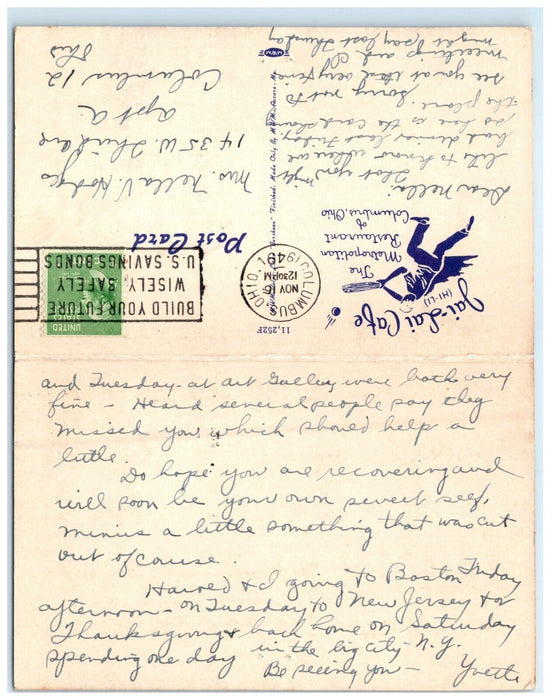 Jai-Lai Cafe
(HI-LI)
The
Metropolitan
Restaurant
of
Columbus, Ohio
11,252F
Post Card
COLUMBUS, OHIO. 1
NOV 16
12 30 PM
1949
BUILD YOUR FUTURE
WISELY, SAFELY
U.S. SAVINGS BONDS
UNITED
Mrs. Nella V. Hodges
1435 W. Third Ave
Apt A.
Columbus 12
Ohio
Dear Nella:
Thot you might
like to know where we
had dinner last Friday,
so here is the card showing
the place. Sorry not to
see you at
meetings and
night (
last Thursday
and Tuesday - at Art Galley were both very
fine - Heard several people say they
missed you, which should help a
little.
Do hope you are recovering and
will soon be your own sweet self,
minus a little something that was cut
out of course.
& I going to Boston Friday
afternoon - on Tuesday to New Jersey for
Thanksgiving & back home on Saturday
spending one day in the big city - N.Y.
Be seeing you - Yvette